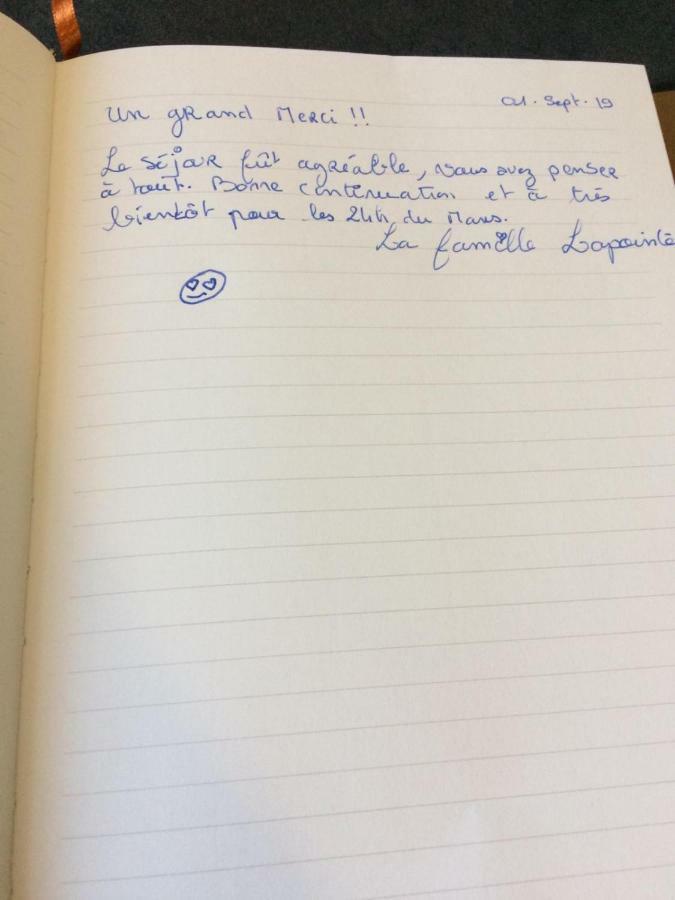 01. Sept. 19
Un grand Merci !!
Le séjour fût agréable, vous avez penser
à tout. Bonne continuation et à très
bientôt pour les 24h du Mans.
La famille Lapointe